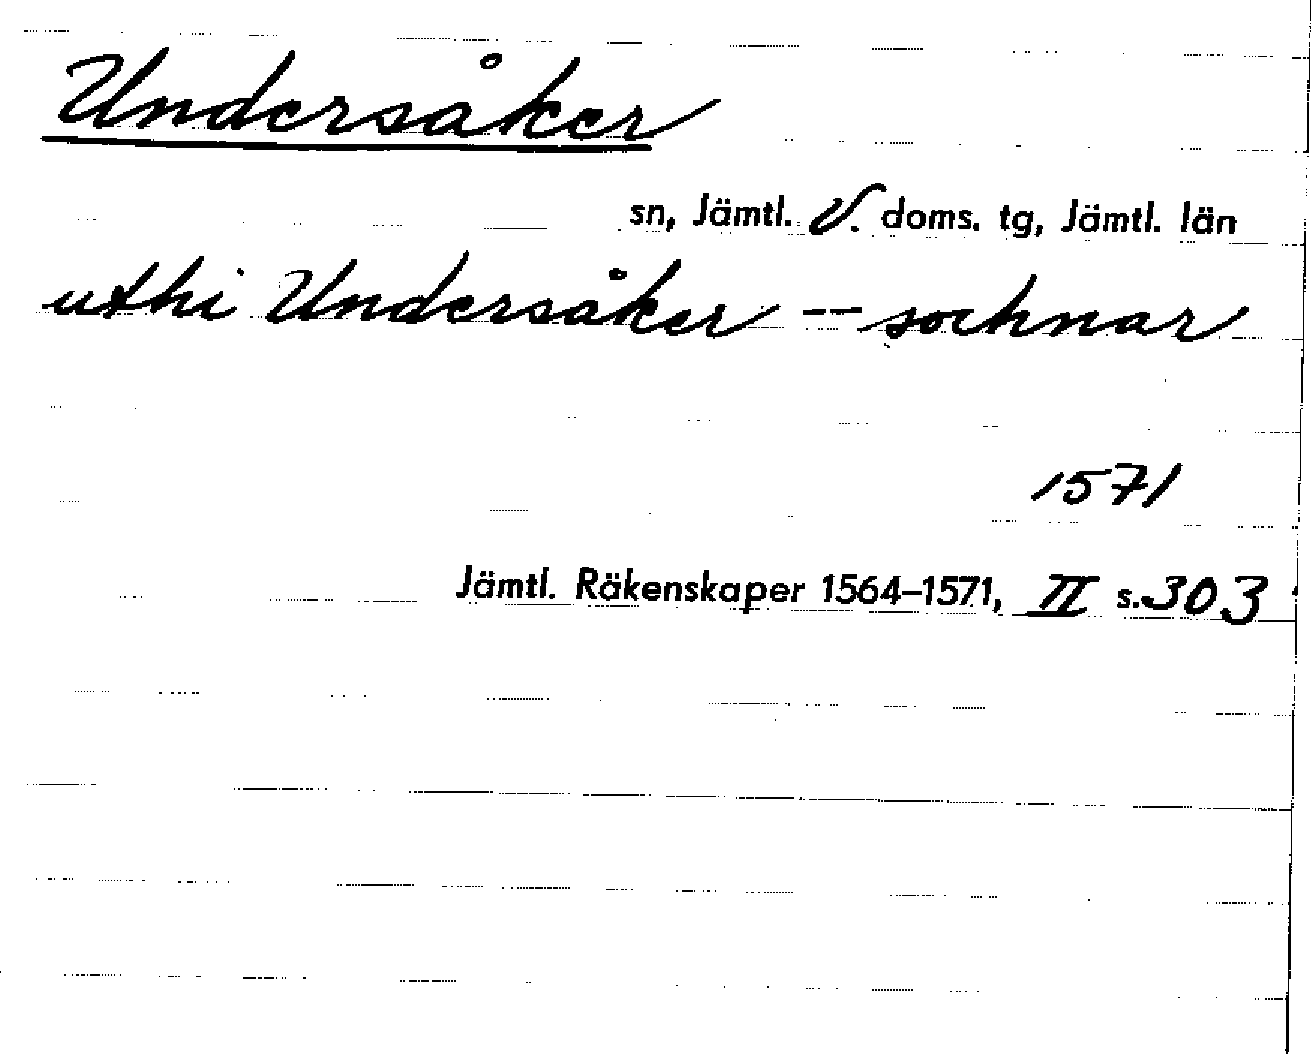 Undersåker
sn, Jämtl. V. doms. tg, Jämtl. län
uthi Undersåker -- sochnar
1571
Jämtl. Räkenskaper 1564–1571, II s. 303